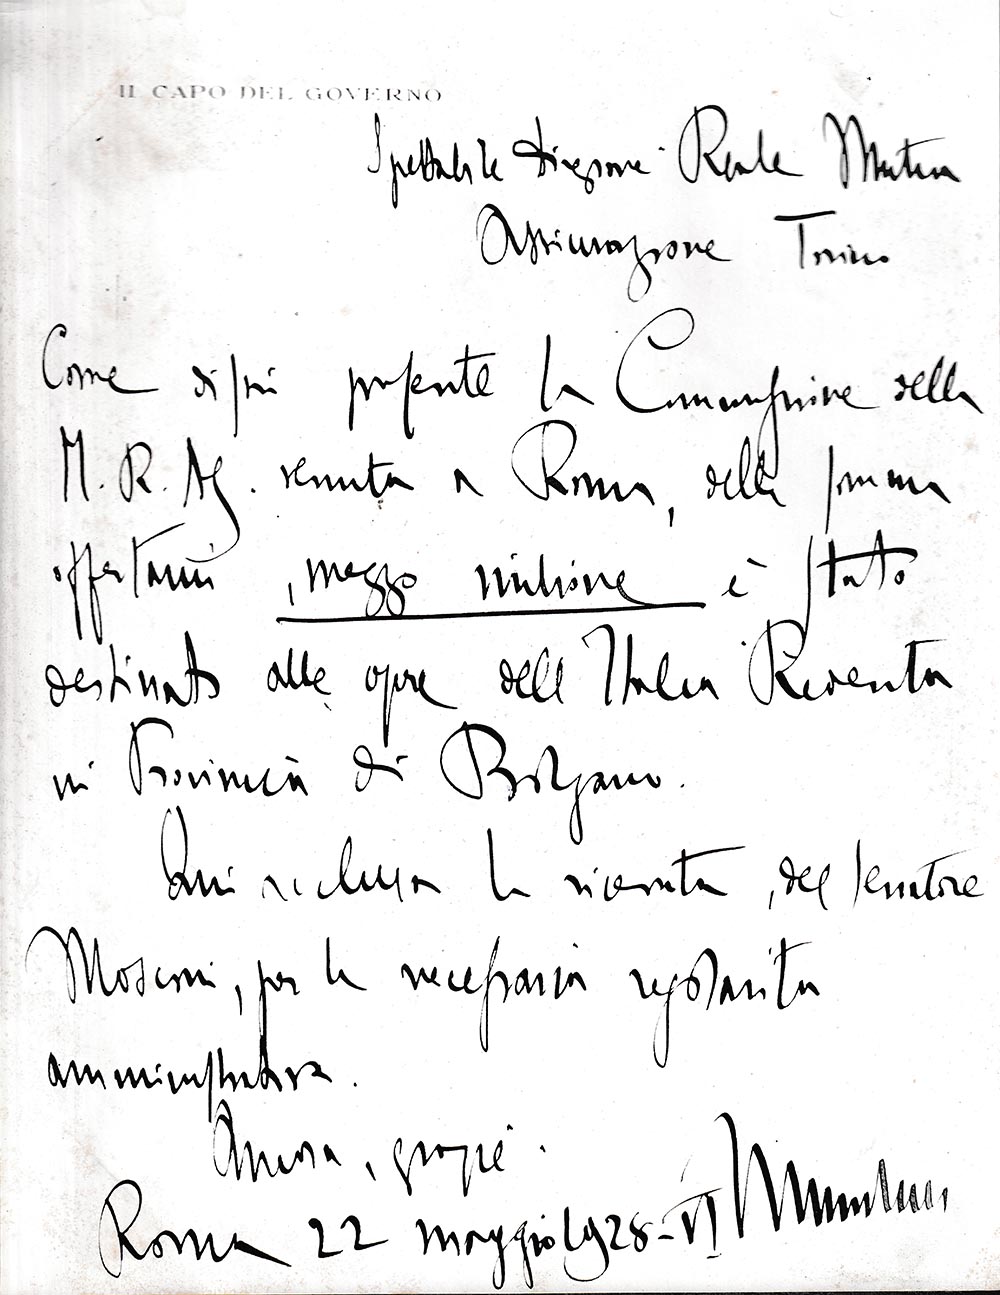 IL CAPO DEL GOVERNO
Spettabile Direzione Reale Mutua
Assicurazione Torino
Come dissi presente la Commissione della
M. R. As. venuta a Roma, della somma
offertami, mezzo milione è stato
destinato alle opere dell Italia Redenta
in Provincia di Bolzano.
Qui acclusa la ricevuta, del senatore
Mosconi, per la necessaria regolarità
amministrativa.
Ancora, grazie.
Roma 22 maggio 1928 - VI Mussolini